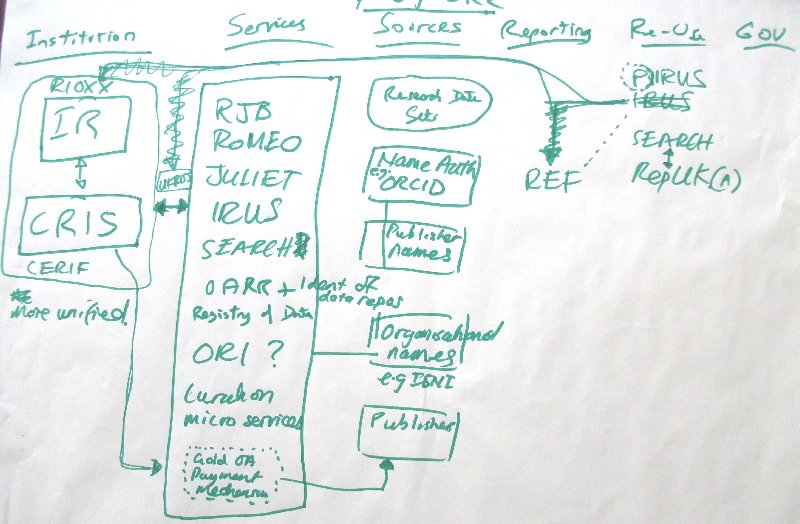 Institution
Services
Sources
Reporting
Re-Use
GOV
RIOXX
IR
CRIS
CERIF
More unified!
RJB
ROMEO
JULIET
IRUS
SEARCH
OARR + Ident of
data repos
Registry of Data
ORI ?
Curation
micro services
Gold OA
Payment
Mechanism
Research Data
Sets
Name Auth
e.g. ORCID
Publisher
names
Organisational
names
e.g ISNI
Publisher
REF
PIRUS
IRUS
SEARCH
RepUK(n)